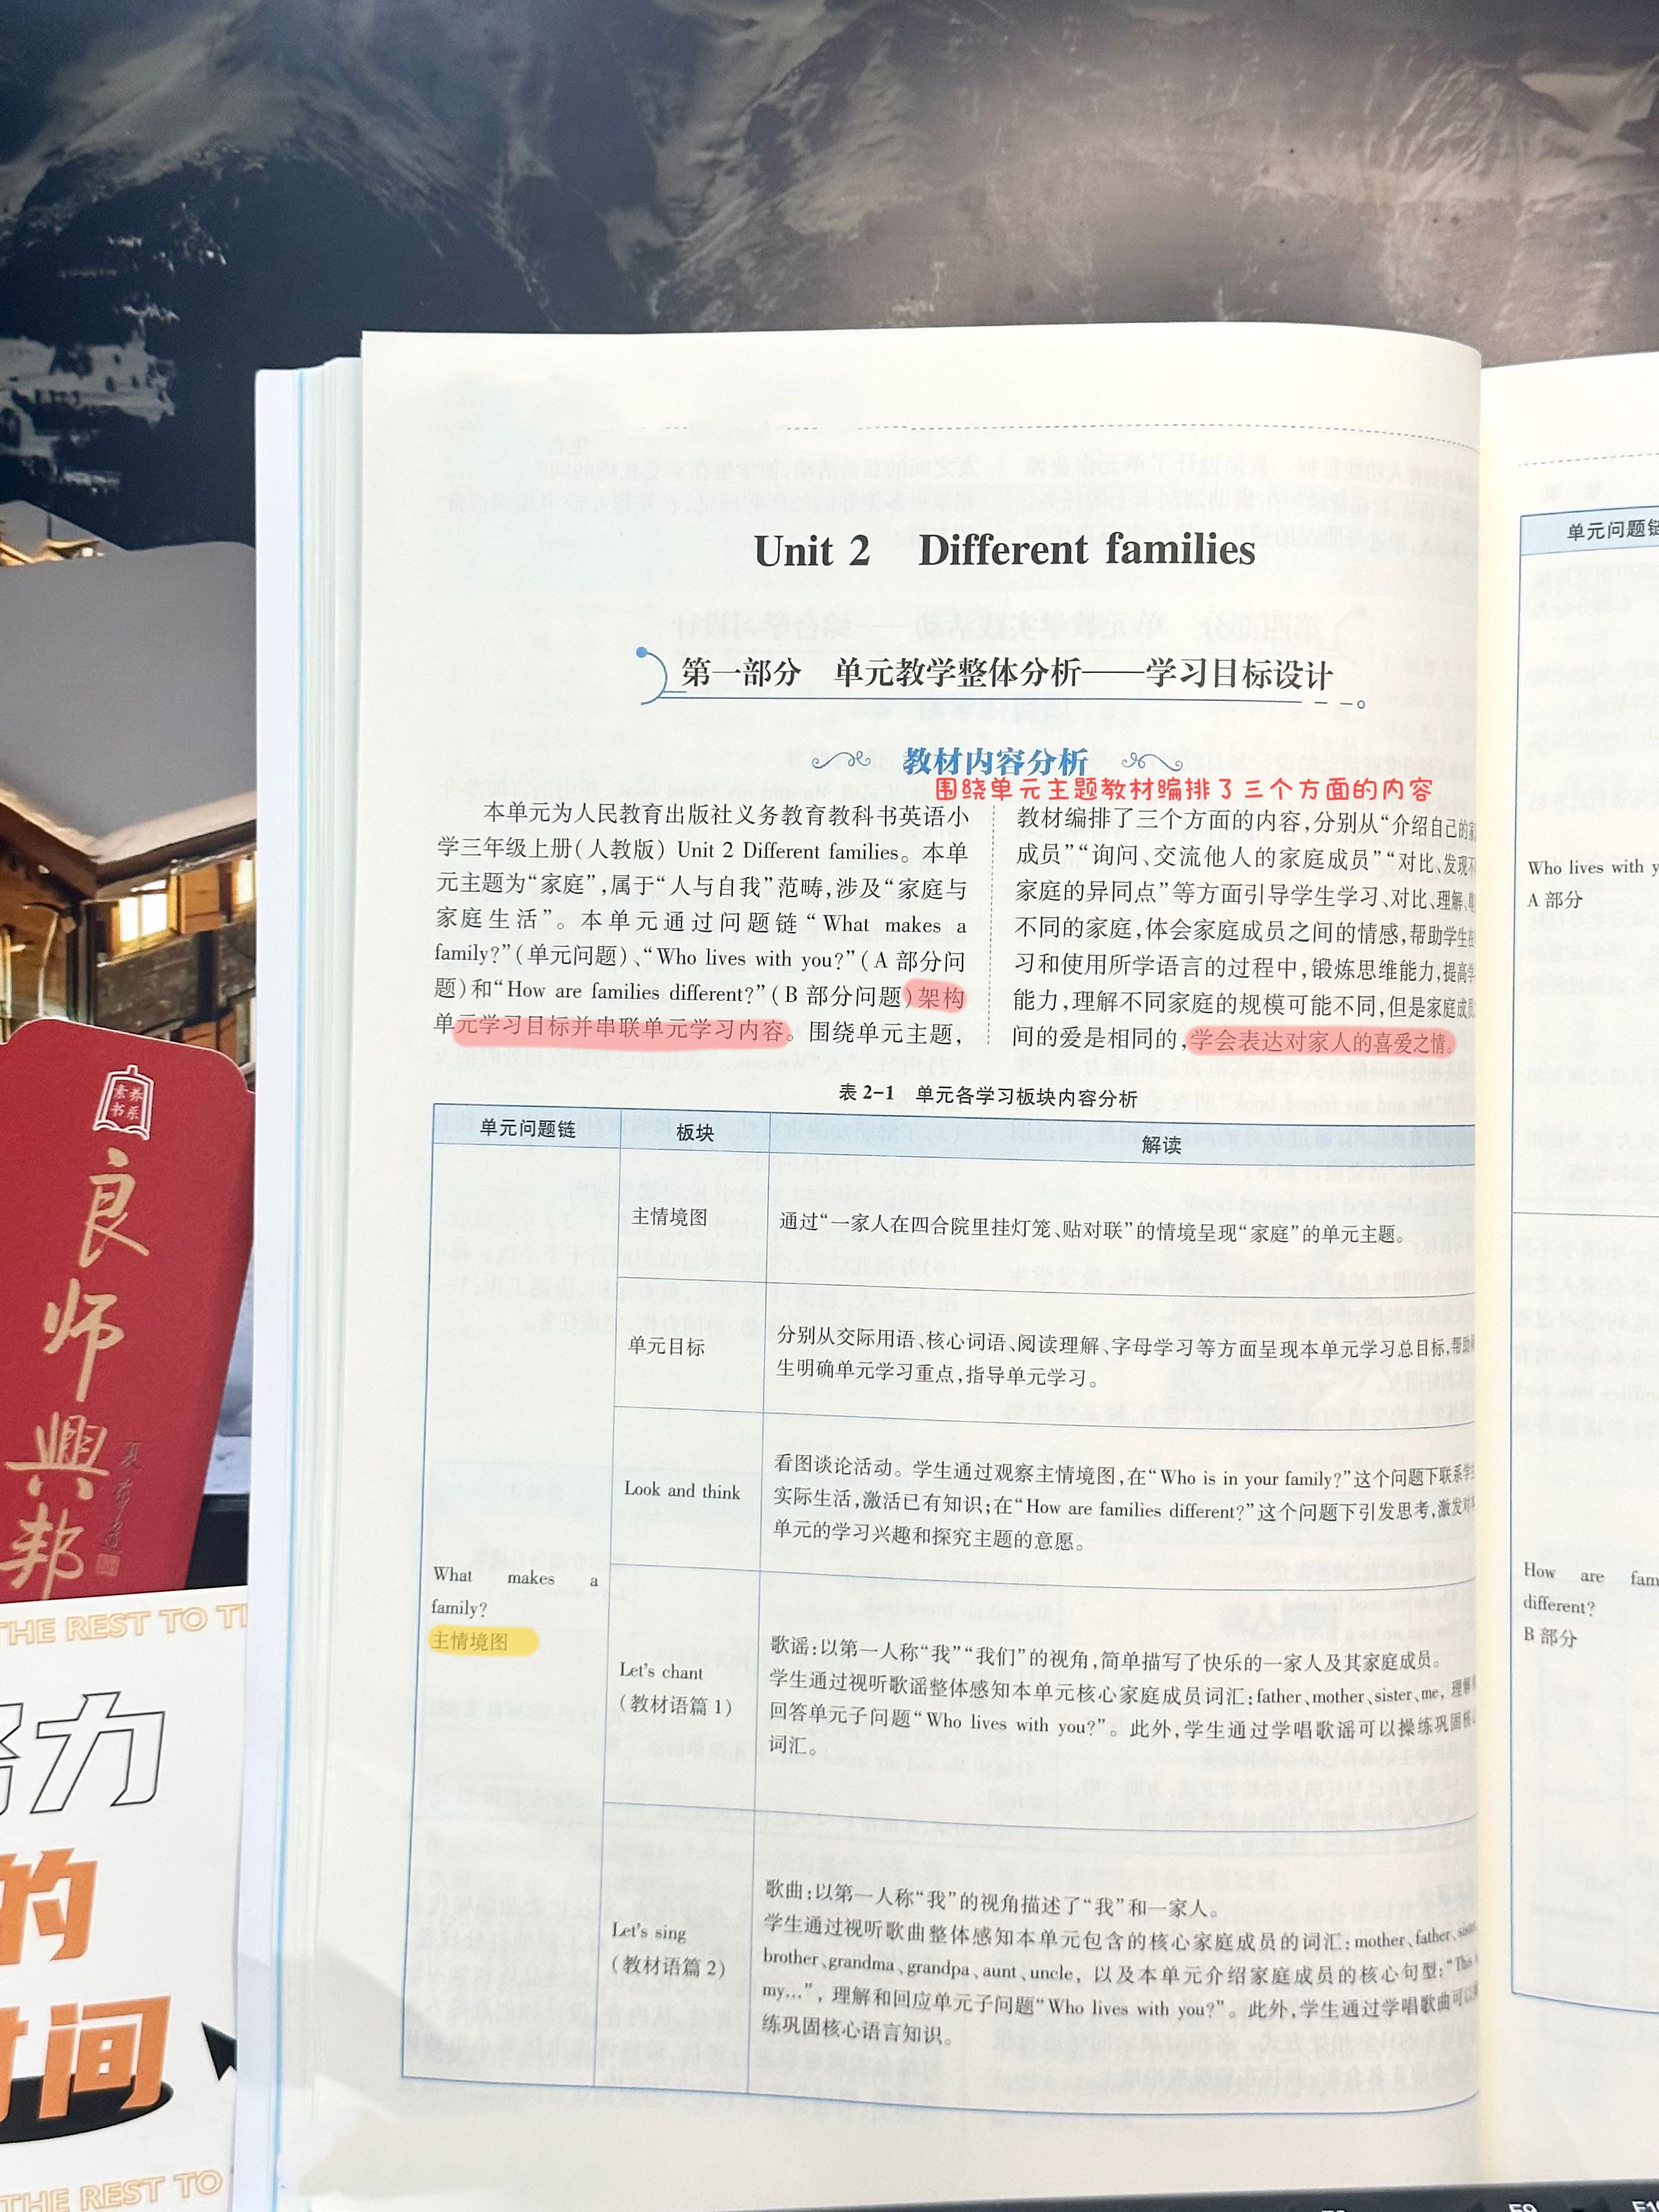 Unit 2 Different families
第一部分 单元教学整体分析——学习目标设计
教材内容分析
围绕单元主题教材编排了三个方面的内容
本单元为人民教育出版社义务教育教科书英语小
学三年级上册(人教版) Unit 2 Different families。本单
元主题为“家庭”,属于“人与自我”范畴,涉及“家庭与
家庭生活”。本单元通过问题链“What makes a
family?”(单元问题)、“Who lives with you?”(A 部分问
题)和“How are families different?”(B 部分问题)架构
单元学习目标并串联单元学习内容。围绕单元主题,
教材编排了三个方面的内容,分别从“介绍自己的家
成员”“询问、交流他人的家庭成员”“对比、发现不
家庭的异同点”等方面引导学生学习、对比、理解、
不同的家庭,体会家庭成员之间的情感,帮助学生在
习和使用所学语言的过程中,锻炼思维能力,提高学
能力,理解不同家庭的规模可能不同,但是家庭成员
间的爱是相同的,学会表达对家人的喜爱之情。
表 2-1 单元各学习板块内容分析
单元问题链
板块
解读
What makes a
family?
主情境图
主情境图
通过“一家人在四合院里挂灯笼、贴对联”的情境呈现“家庭”的单元主题。
单元目标
分别从交际用语、核心词语、阅读理解、字母学习等方面呈现本单元学习总目标,帮助
生明确单元学习重点,指导单元学习。
Look and think
看图谈论活动。学生通过观察主情境图,在“Who is in your family?”这个问题下联系学
实际生活,激活已有知识;在“How are families different?”这个问题下引发思考,激发对
单元的学习兴趣和探究主题的意愿。
Let's chant
(教材语篇 1)
歌谣:以第一人称“我”“我们”的视角,简单描写了快乐的一家人及其家庭成员。
学生通过视听歌谣整体感知本单元核心家庭成员词汇:father、mother、sister、me, 理解
回答单元子问题“Who lives with you?”。此外,学生通过学唱歌谣可以操练巩固核
词汇。
Let's sing
(教材语篇 2)
歌曲:以第一人称“我”的视角描述了“我”和一家人。
学生通过视听歌曲整体感知本单元包含的核心家庭成员的词汇:mother、father、
brother、grandma、grandpa、aunt、uncle, 以及本单元介绍家庭成员的核心句型:“This
my...”, 理解和回应单元子问题“Who lives with you?”。此外,学生通过学唱歌曲可以
练巩固核心语言知识。
单元问题链
Who lives with y
A 部分
How are fam
different?
B 部分
素养
书系
良师兴邦
THE REST TO TI
努力
的
时间
THE REST TO
F9
F10